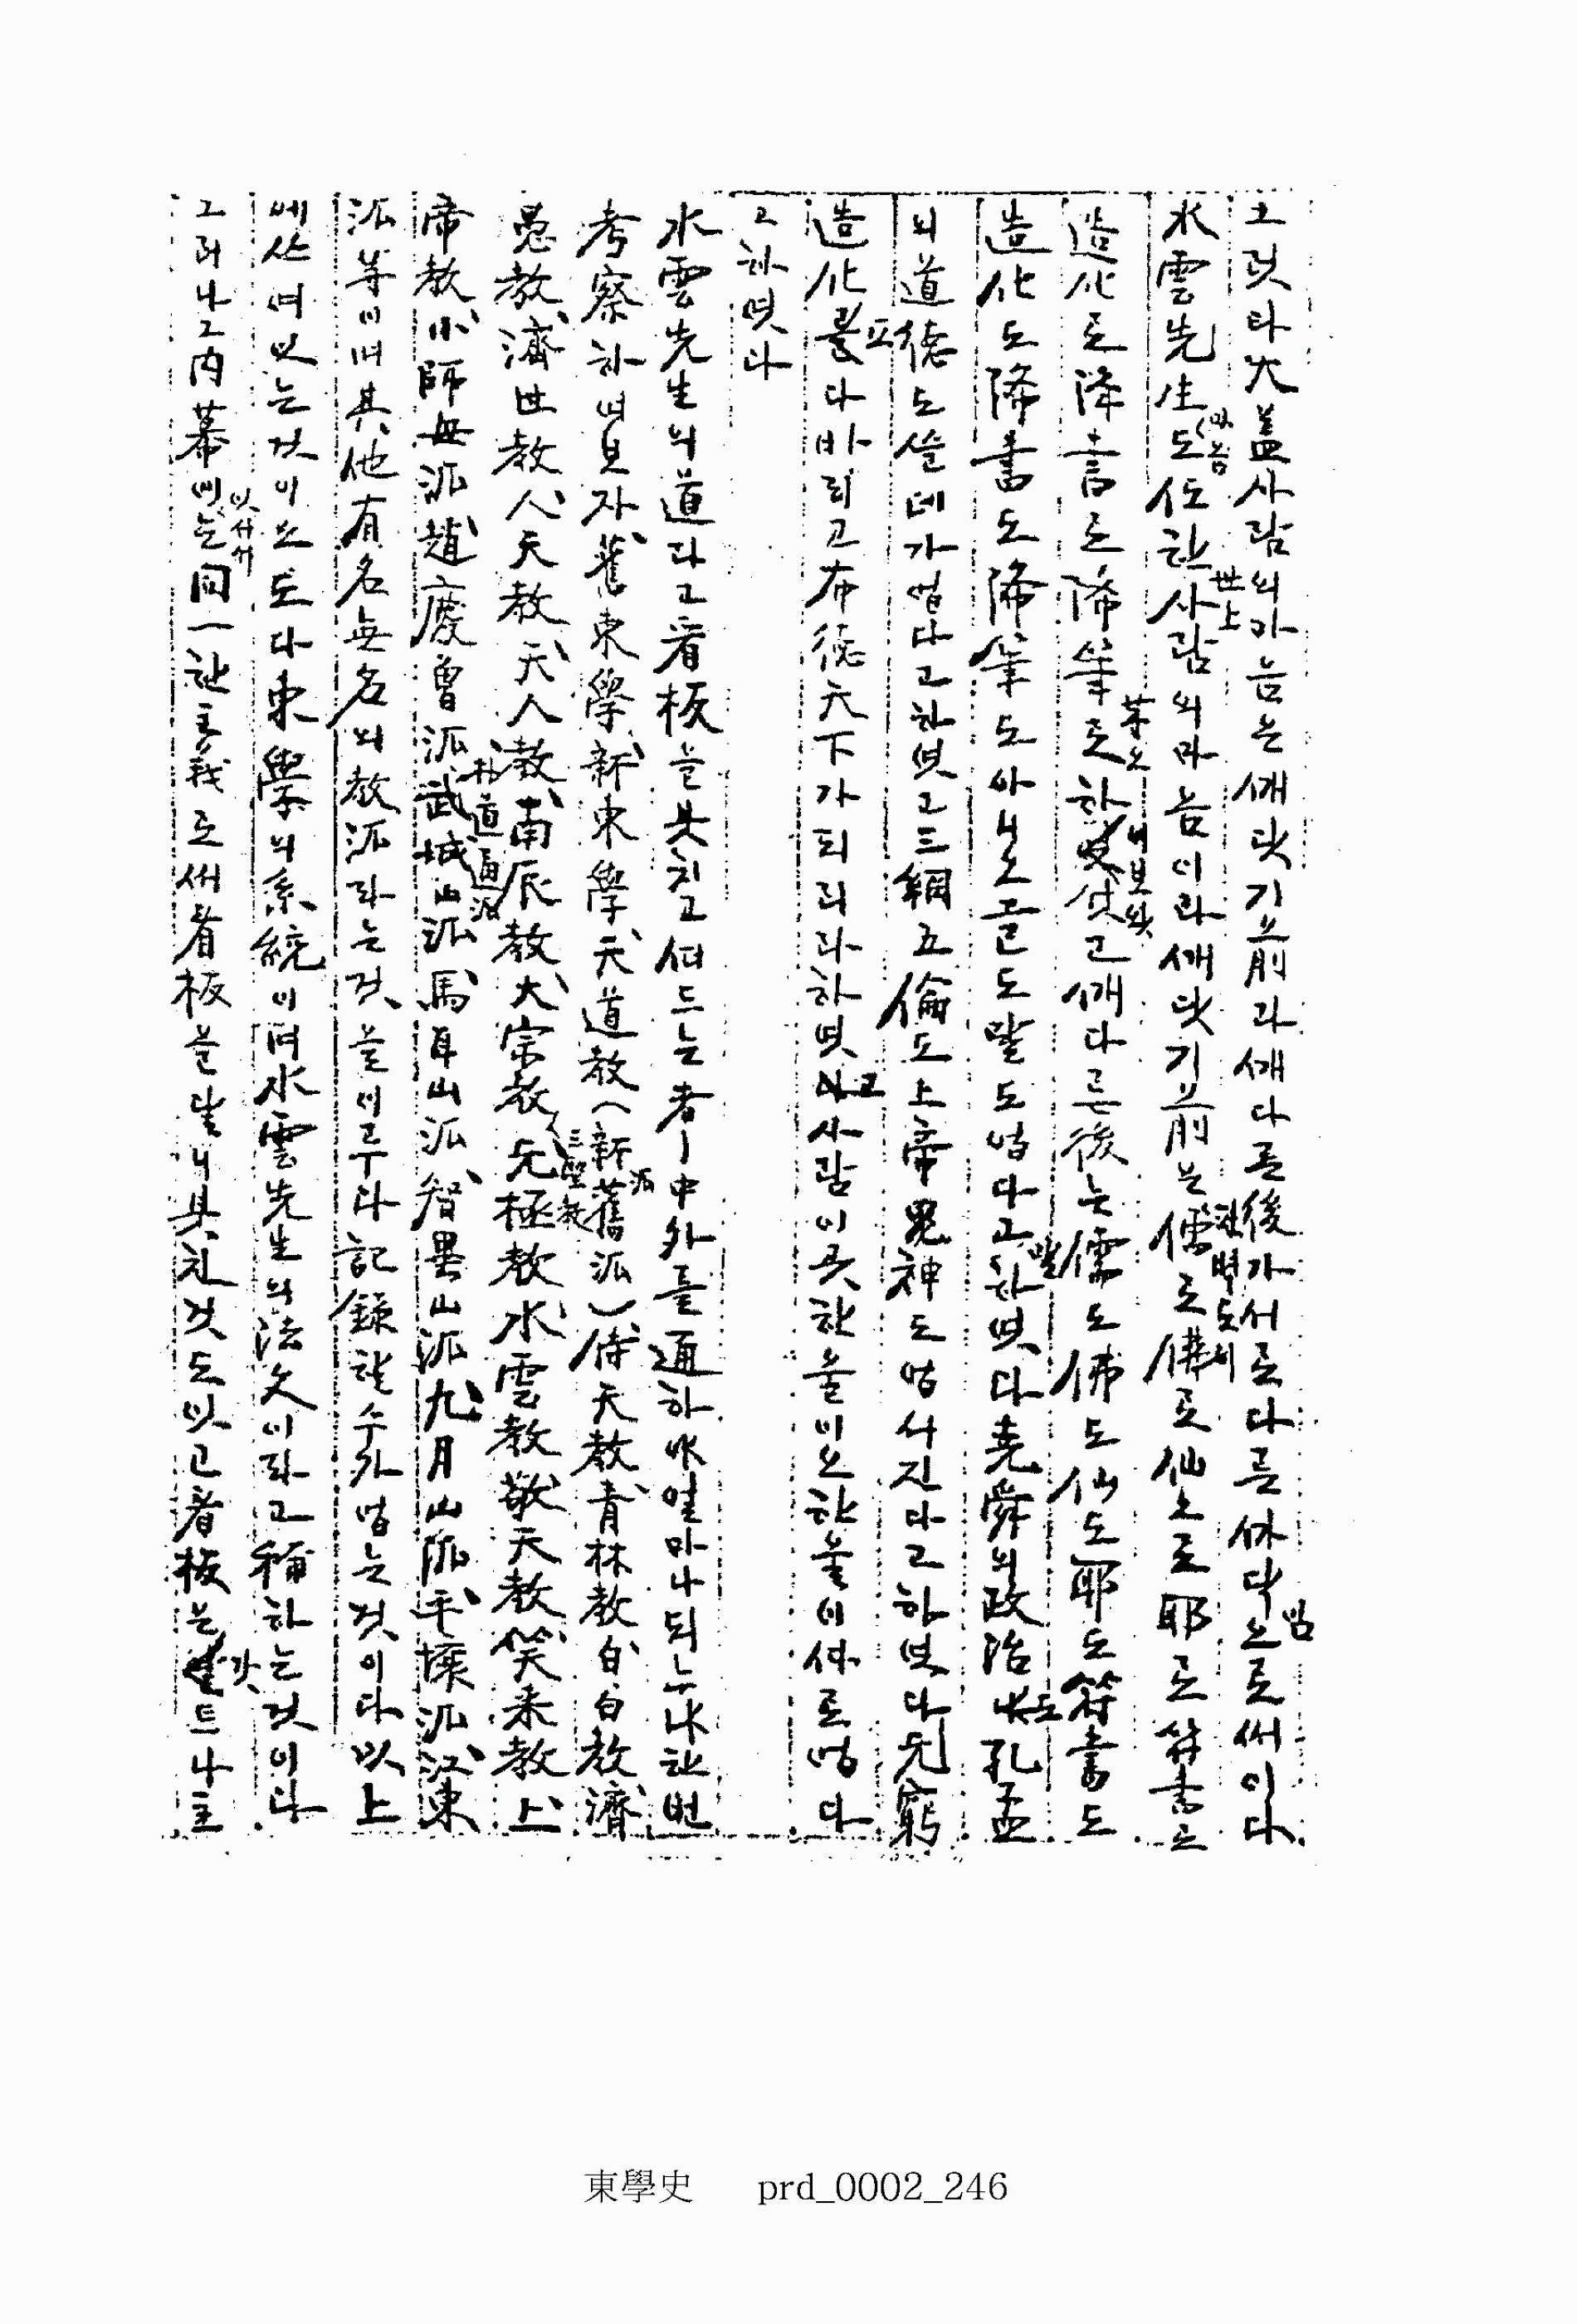 그럿타 大盖 사람의 마음은 ᄭᅢ닷기 前과 ᄭᅢ다른 後가 서로 다른 ᄭᅡ닥으로써이다
水雲先生도 亦是 한사람의 마음이라 ᄭᅢ닷기 前은 儒로 佛로 仙으로 耶로 符書로
造化로 降書로 降筆로 하 고 ᄭᅢ다른 後는 儒도 佛도 仙도 耶도 符書도
造化도 降書도 降筆도 아모 글도 말도 업다고 하엿다 堯舜의 政治도 孔孟
의 道德도 쓸데가 업다고 하엿고 三綱五倫도 上帝鬼神도 업서진다고 하엿다 无窮
造化 다 바리고 布德天下가 되리라 하엿고 사람이 곳 한울이오 한울이 ᄯᅡ로 업다
고 하엿다
水雲先生의 道라고 看板을 붓치고 ᄯᅥ드는 者ㅣ 中外를 通하야 얼마나 되느냐 한번
考察하여 보자 舊東學、新東學、天道敎(新派舊派)侍天敎、青林敎、白白敎、濟
愚敎、濟世敎、人天敎、天人敎、南辰敎、大宗敎(三聖敎)、无極敎、水雲敎、敬天敎、笑來敎、上
帝敎、小師母派、趙慶曾派、朴道通派、武城山派、馬耳山派、智異山派、九月山派、平壤派、江東
派等이며 其他 有名無名의 敎派라는 것을 이로 다 記錄할 수가 업는 것이다 以上
에 쓰여 잇는 것이 모도다 東學의 系統이며 水雲先生의 法文이라고 稱하는 것이다
그러나 그 內幕에 잇서서는 同一한 主義로써 看板을 달니 붓친 것도 잇고 看板은 갓트나 主